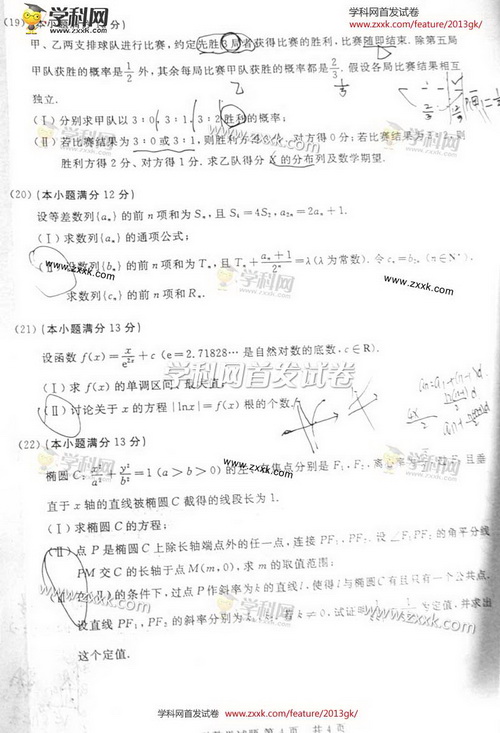 学科网首发试卷
www.zxxk.com/feature/2013gk/
(19)(本小题满分12分)
甲、乙两支排球队进行比赛,约定先胜3局者获得比赛的胜利,比赛随即结束. 除第五局
甲队获胜的概率是1/2外,其余每局比赛甲队获胜的概率都是2/3. 假设各局比赛结果相互
独立.
(Ⅰ)分别求甲队以3:0,3:1,3:2胜利的概率;
(Ⅱ)若比赛结果为3:0或3:1,则胜利方得3分、对方得0分;若比赛结果为3:2,则
胜利方得2分、对方得1分. 求乙队得分X的分布列及数学期望.
(20)(本小题满分12分)
设等差数列{aₙ}的前n项和为Sₙ,且S₄=4S₂,a₂ₙ=2aₙ+1.
(Ⅰ)求数列{aₙ}的通项公式;
(Ⅱ)设数列{bₙ}的前n项和为Tₙ,且Tₙ+(aₙ+1)/2ⁿ=λ(λ为常数). 令cₙ=b₂ₙ (n∈N*).
求数列{cₙ}的前n项和Rₙ.
学科网
www.zxxk.com
(21)(本小题满分13分)
设函数f(x)=x/e²ˣ+c (e=2.71828⋯是自然对数的底数,c∈R).
学科网首发试卷
(Ⅰ)求f(x)的单调区间、最大值;
www.zxxk.com
(Ⅱ)讨论关于x的方程|lnx|=f(x)根的个数.
(22)(本小题满分13分)
椭圆C:x²/a²+y²/b²=1(a>b>0)的左、右焦点分别是F₁、F₂,离心率为 且垂
直于x轴的直线被椭圆C截得的线段长为1.
(Ⅰ)求椭圆C的方程;
(Ⅱ)点P是椭圆C上除长轴端点外的任一点,连接PF₁、PF₂. 设∠F₁PF₂的角平分线
PM交C的长轴于点M(m,0),求m的取值范围;
(Ⅲ)在(Ⅱ)的条件下,过点P作斜率为k的直线l,使得l与椭圆C有且只有一个公共点.
设直线PF₁、PF₂的斜率分别为k₁、k₂. 若k≠0,试证明 为定值,并求出
这个定值.
学科网首发试卷 www.zxxk.com/feature/2013gk/
第4页 共4页